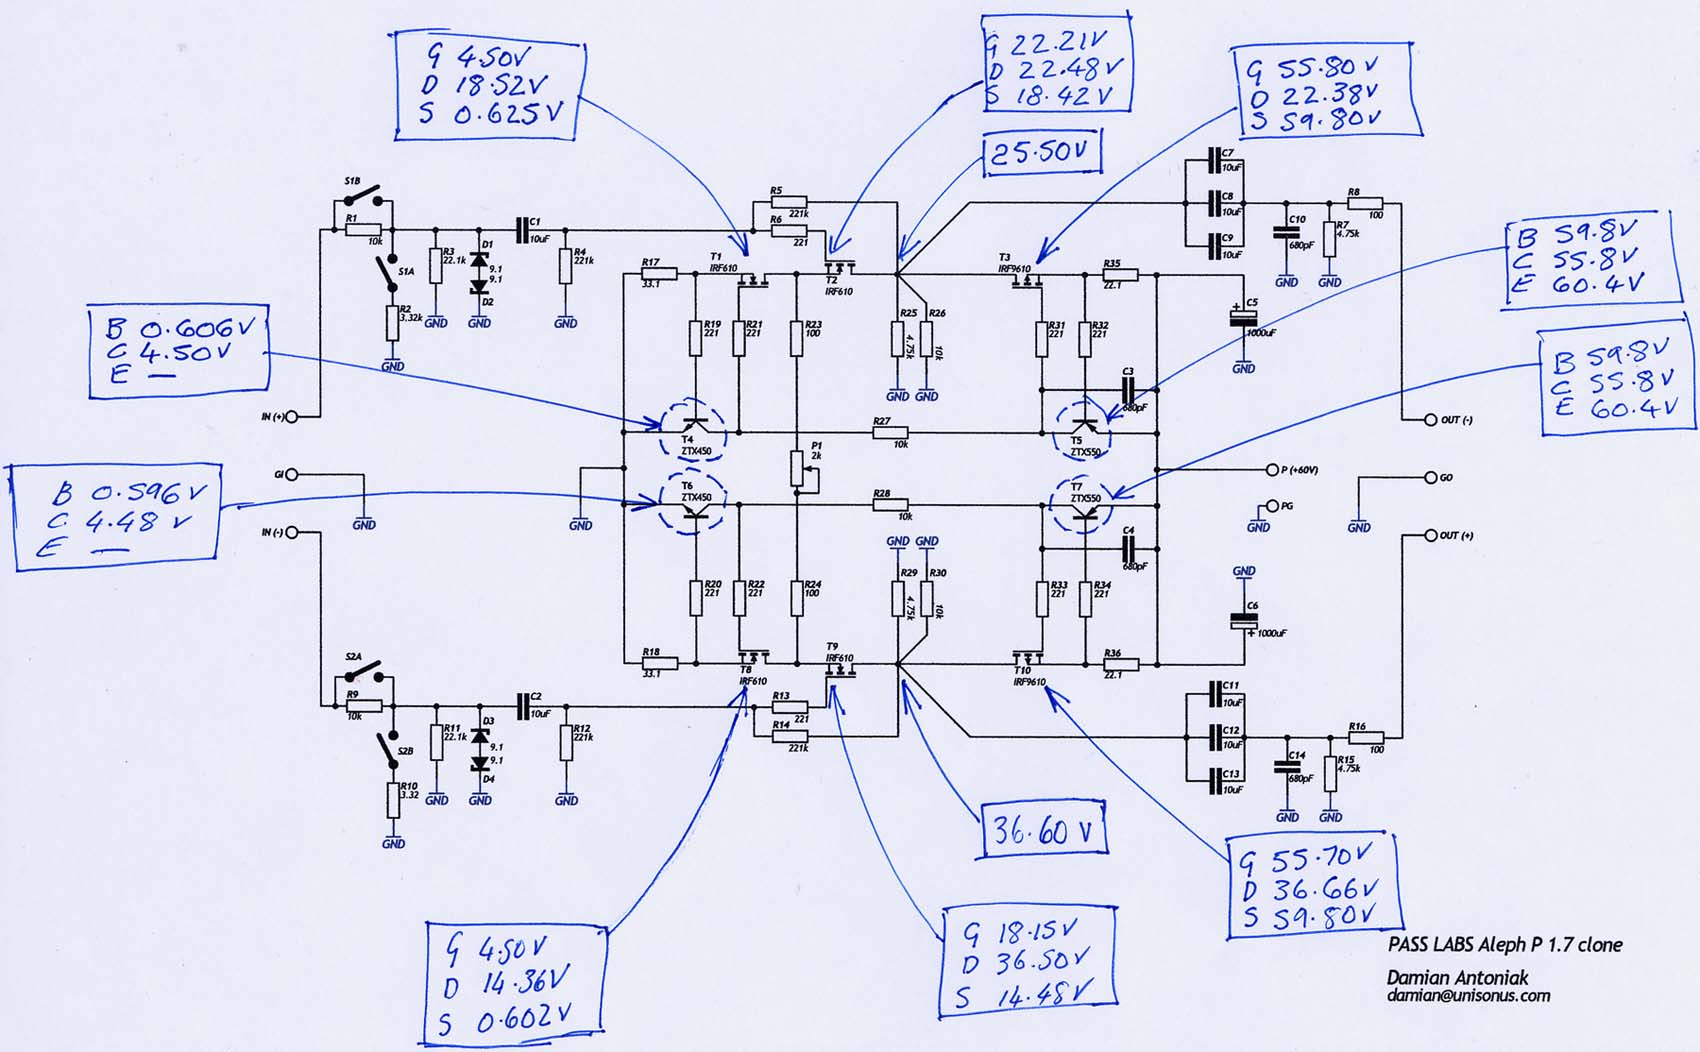 G 4.50V
D 18.52V
S 0.625V
G 22.21V
D 22.48V
S 18.42V
25.50V
G 55.80V
D 22.38V
S 59.80V
B 59.8V
C 55.8V
E 60.4V
B 59.8V
C 55.8V
E 60.4V
B 0.606V
C 4.50V
E —
B 0.596V
C 4.48V
E —
S1B
R1
10k
S1A
R2
3.32k
GND
R3
22.1k
GND
D1
9.1
9.1
D2
GND
C1
10uF
R4
221k
GND
R5
221k
R6
221
R17
33.1
T1
IRF610
T2
IRF610
T3
IRF9610
R35
22.1
C7
10uF
C8
10uF
C9
10uF
C10
680pF
GND
R7
4.75k
GND
R8
100
C5
+
1000uF
GND
R19
221
R21
221
R23
100
R25
4.75k
GND
R26
10k
GND
R31
221
R32
221
C3
680pF
T4
ZTX450
R27
10k
T5
ZTX550
P1
2k
IN (+)
GI
GND
IN (-)
GND
OUT (-)
P (+60V)
PG
GND
GO
GND
OUT (+)
T6
ZTX450
R28
10k
T7
ZTX550
C4
680pF
R20
221
R22
221
R24
100
GND
R29
4.75k
GND
R30
10k
R33
221
R34
221
GND
C6
+
1000uF
R18
33.1
T8
IRF610
T9
IRF610
T10
IRF9610
R36
22.1
S2A
R9
10k
S2B
R10
3.32
GND
R11
22.1k
GND
D3
9.1
9.1
D4
GND
C2
10uF
R12
221k
GND
R13
221
R14
221k
C11
10uF
C12
10uF
C13
10uF
C14
680pF
GND
R15
4.75k
GND
R16
100
36.60V
G 4.50V
D 14.36V
S 0.602V
G 18.15V
D 36.50V
S 14.48V
G 55.70V
D 36.66V
S 59.80V
PASS LABS Aleph P 1.7 clone
Damian Antoniak
damian@unisonus.com